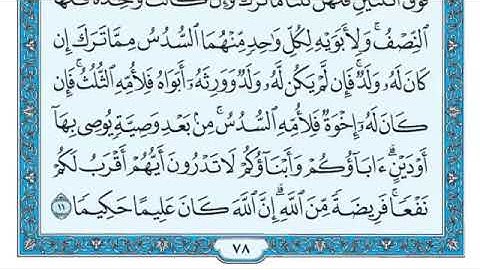 فَوْقَ ٱثْنَتَيْنِ فَلَهُنَّ ثُلُثَا مَا تَرَكَ وَإِن كَانَتْ وَٰحِدَةً فَلَهَا
ٱلنِّصْفُ ۚ وَلِأَبَوَيْهِ لِكُلِّ وَٰحِدٍ مِّنْهُمَا ٱلسُّدُسُ مِمَّا تَرَكَ إِن
كَانَ لَهُۥ وَلَدٌ ۚ فَإِن لَّمْ يَكُن لَّهُۥ وَلَدٌ وَوَرِثَهُۥٓ أَبَوَاهُ فَلِأُمِّهِ ٱلثُّلُثُ ۚ فَإِن
كَانَ لَهُۥٓ إِخْوَةٌ فَلِأُمِّهِ ٱلسُّدُسُ ۚ مِنۢ بَعْدِ وَصِيَّةٍ يُوصِى بِهَآ
أَوْ دَيْنٍ ۗ ءَابَآؤُكُمْ وَأَبْنَآؤُكُمْ لَا تَدْرُونَ أَيُّهُمْ أَقْرَبُ لَكُمْ
نَفْعًا ۚ فَرِيضَةً مِّنَ ٱللَّهِ ۗ إِنَّ ٱللَّهَ كَانَ عَلِيمًا حَكِيمًا ١١
٧٨